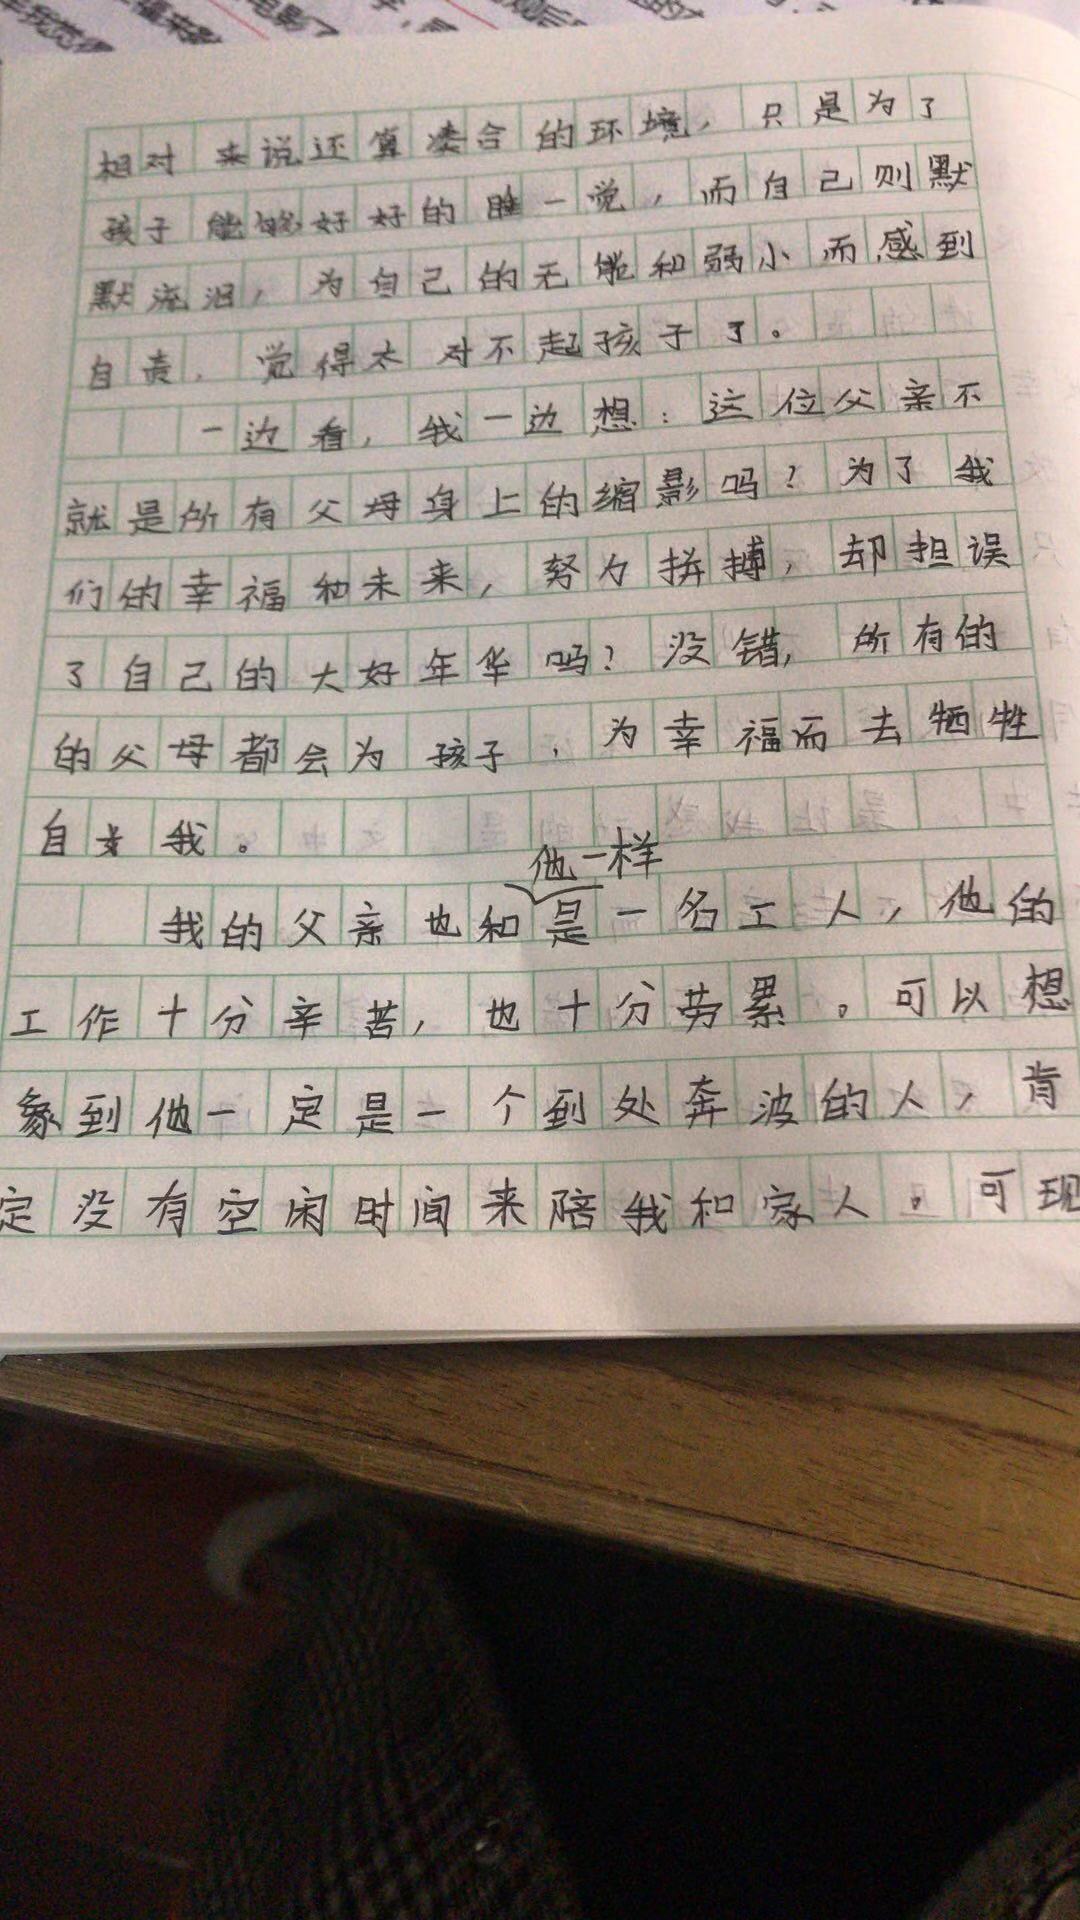 相对来说还算凑合的环境，只是为了
孩子能够好好的睡一觉，而自己则默
默流泪，为自己的无能和弱小而感到
自责，觉得太对不起孩子了。
一边看，我一边想：这位父亲不
就是所有父母身上的缩影吗？为了我
们的幸福和未来，努力拼搏，却担误
了自己的大好年华吗？没错，所有的
的父母都会为孩子，为幸福而去牺牲
自我。
他一样
我的父亲也和是一名工人，他的
工作十分辛苦，也十分劳累。可以想
象到他一定是一个到处奔波的人，肯
定没有空闲时间来陪我和家人。可现